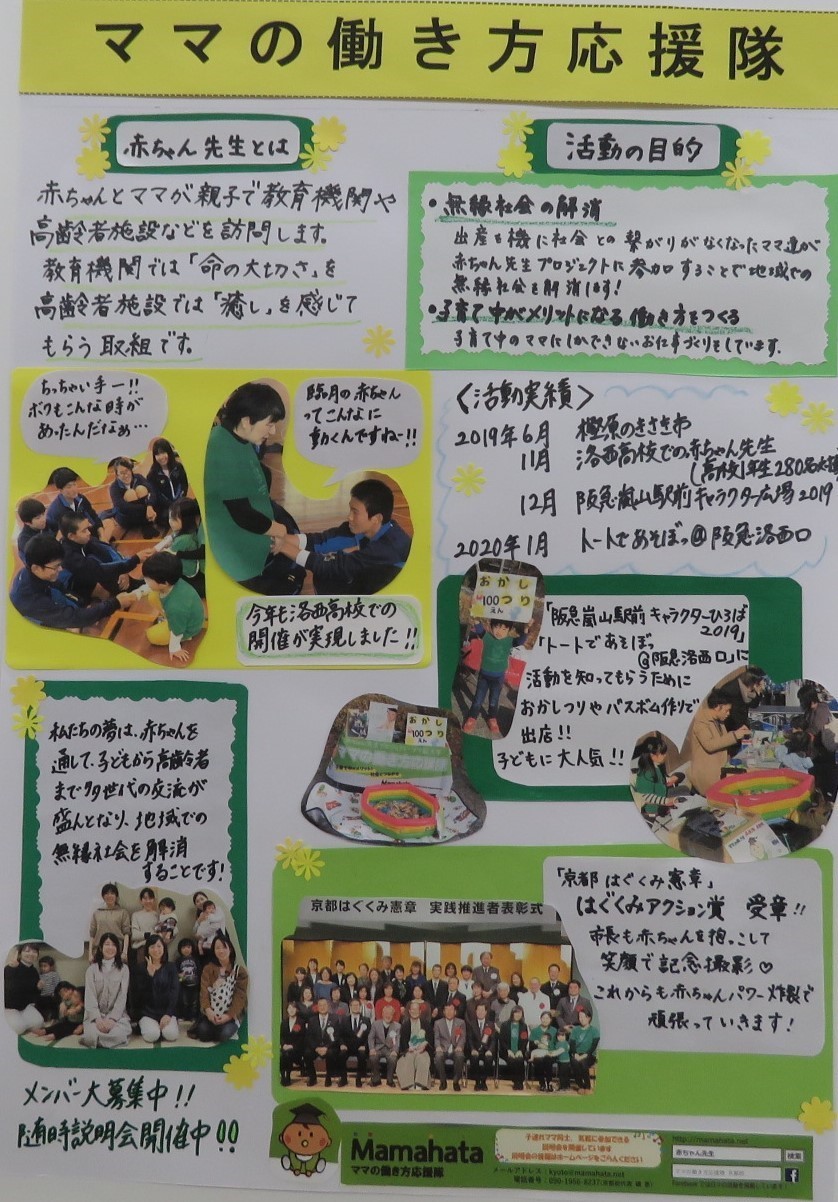 ママの働き方応援隊
赤ちゃん先生とは
赤ちゃんとママが親子で教育機関や
高齢者施設などを訪問します。
教育機関では「命の大切さ」を
高齢者施設では「癒し」を感じて
もらう取組です。
活動の目的
・無縁社会の解消
出産を機に社会との繋がりがなくなったママ達が
赤ちゃん先生プロジェクトに参加することで地域での
無縁社会を解消します!
・子育て中がメリットになる働き方をつくる
子育て中のママにしかできないお仕事づくりをしています.
ちっちゃい手ー!!
ボクもこんな時が
あったんだなぁ…
臨月の赤ちゃん
ってこんなに
動くんですねー!!
今年も洛西高校での
開催が実現しました!!
〈活動実績〉
2019年6月 樫原のきさき市
11月 洛西高校での赤ちゃん先生
(高校1年生280名
12月 阪急嵐山駅前キャラクター広場2019
2020年1月 トートであそぼっ@阪急洛西口
おかし
100つり
えん
「阪急嵐山駅前キャラクターひろば
2019」
「トートであそぼっ
@阪急洛西口」に
活動を知ってもらうために
おかしつりやバスボム作りで
出店!!
子どもに大人気!!
おかし
100つり
えん
Mamahata
私たちの夢は、赤ちゃんを
通して、子どもから高齢者
まで多世代の交流が
盛んとなり、地域での
無縁社会を解消
することです!
メンバー大募集中!!
随時説明会開催中!!
京都はぐくみ憲章 実践推進者表彰式
「京都はぐくみ憲章」
はぐくみアクション賞 受章!!
市長も赤ちゃんを抱っこして
笑顔で記念撮影♡
これからも赤ちゃんパワー炸裂で
頑張っていきます!
Mamahata
ママの働き方応援隊
子連れママ同士 気軽に参加できる
説明会を開催しています
説明会の情報はホームページをごらんください
メールアドレス:kyoto@mamahata.net
http://mamahata.net
赤ちゃん先生
検索